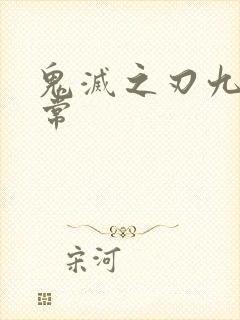 鬼滅之刃九
常
宋河